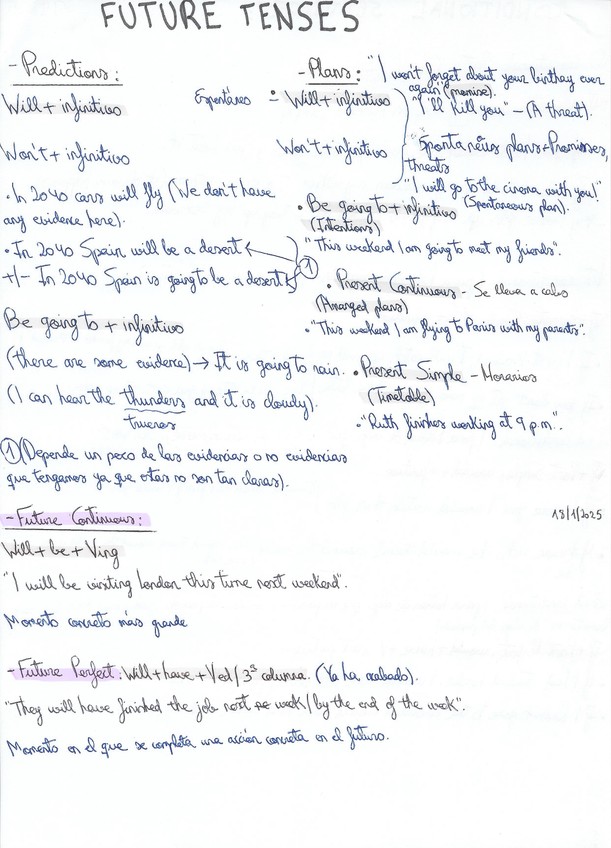 FUTURE TENSES
- Predictions:
Will + infinitivo
Won't + infinitivo
• In 2040 cars will fly (We don't have
any evidence here).
• In 2040 Spain will be a desert
+/- In 2040 Spain is going to be a desert
①
Be going to + infinitivo
(there are some evidence) → It is going to rain.
(I can hear the thunders and it is cloudy).
truenos
① (Depende un poco de las evidencias o no evidencias
que tengamos ya que estas no son tan claras).
- Plans:
Espontáneo
Will + infinitivo
Won't + infinitivo
"I won't forget about your birthay ever
again" (promise).
"I'll kill you" - (A threat).
Spontaneus plans + Promisses,
threats
"I will go to the cinema with you!"
(Spontaneous plan).
• Be going to + infinitivo
(Intentions)
"This weekend I am going to meet my friends".
• Present Continuous - Se lleva a cabo
(Arranged plans)
• "This weekend I am flying to Paris with my parents".
• Present Simple - Horarios
(Timetable)
• "Ruth finishes working at 9 p.m".
18/1/2025
- Future Continuous:
Will + be + Ving
"I will be visiting London this time next weekend".
Momento concreto más grande
- Future Perfect: Will + have + Ved / 3ª columna. (Ya ha acabado).
"They will have finished the job next week / by the end of the week".
Momento en el que se completa una acción concreta en el futuro.